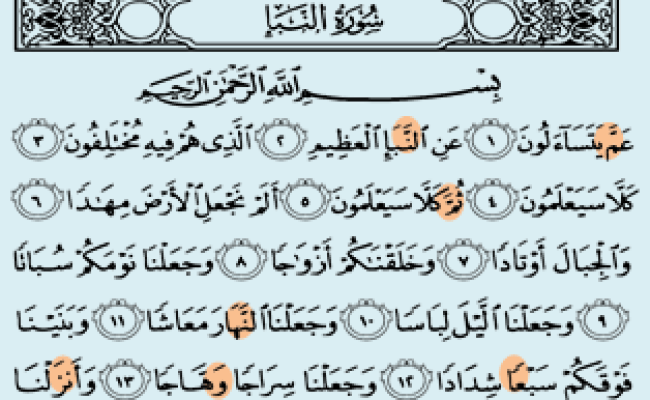 سُورَةُ النَّبَإِ
بِسْمِ اللَّهِ الرَّحْمَٰنِ الرَّحِيمِ
عَمَّ يَتَسَآءَلُونَ ١ عَنِ النَّبَإِ الْعَظِيمِ ٢ الَّذِى هُمْ فِيهِ مُخْتَلِفُونَ ٣
كَلَّا سَيَعْلَمُونَ ٤ ثُمَّ كَلَّا سَيَعْلَمُونَ ٥ أَلَمْ نَجْعَلِ الْأَرْضَ مِهَٰدًا ٦
وَالْجِبَالَ أَوْتَادًا ٧ وَخَلَقْنَٰكُمْ أَزْوَٰجًا ٨ وَجَعَلْنَا نَوْمَكُمْ سُبَاتًا
٩ وَجَعَلْنَا الَّيْلَ لِبَاسًا ١٠ وَجَعَلْنَا النَّهَارَ مَعَاشًا ١١ وَبَنَيْنَا
فَوْقَكُمْ سَبْعًا شِدَادًا ١٢ وَجَعَلْنَا سِرَاجًا وَهَّاجًا ١٣ وَأَنزَلْنَا